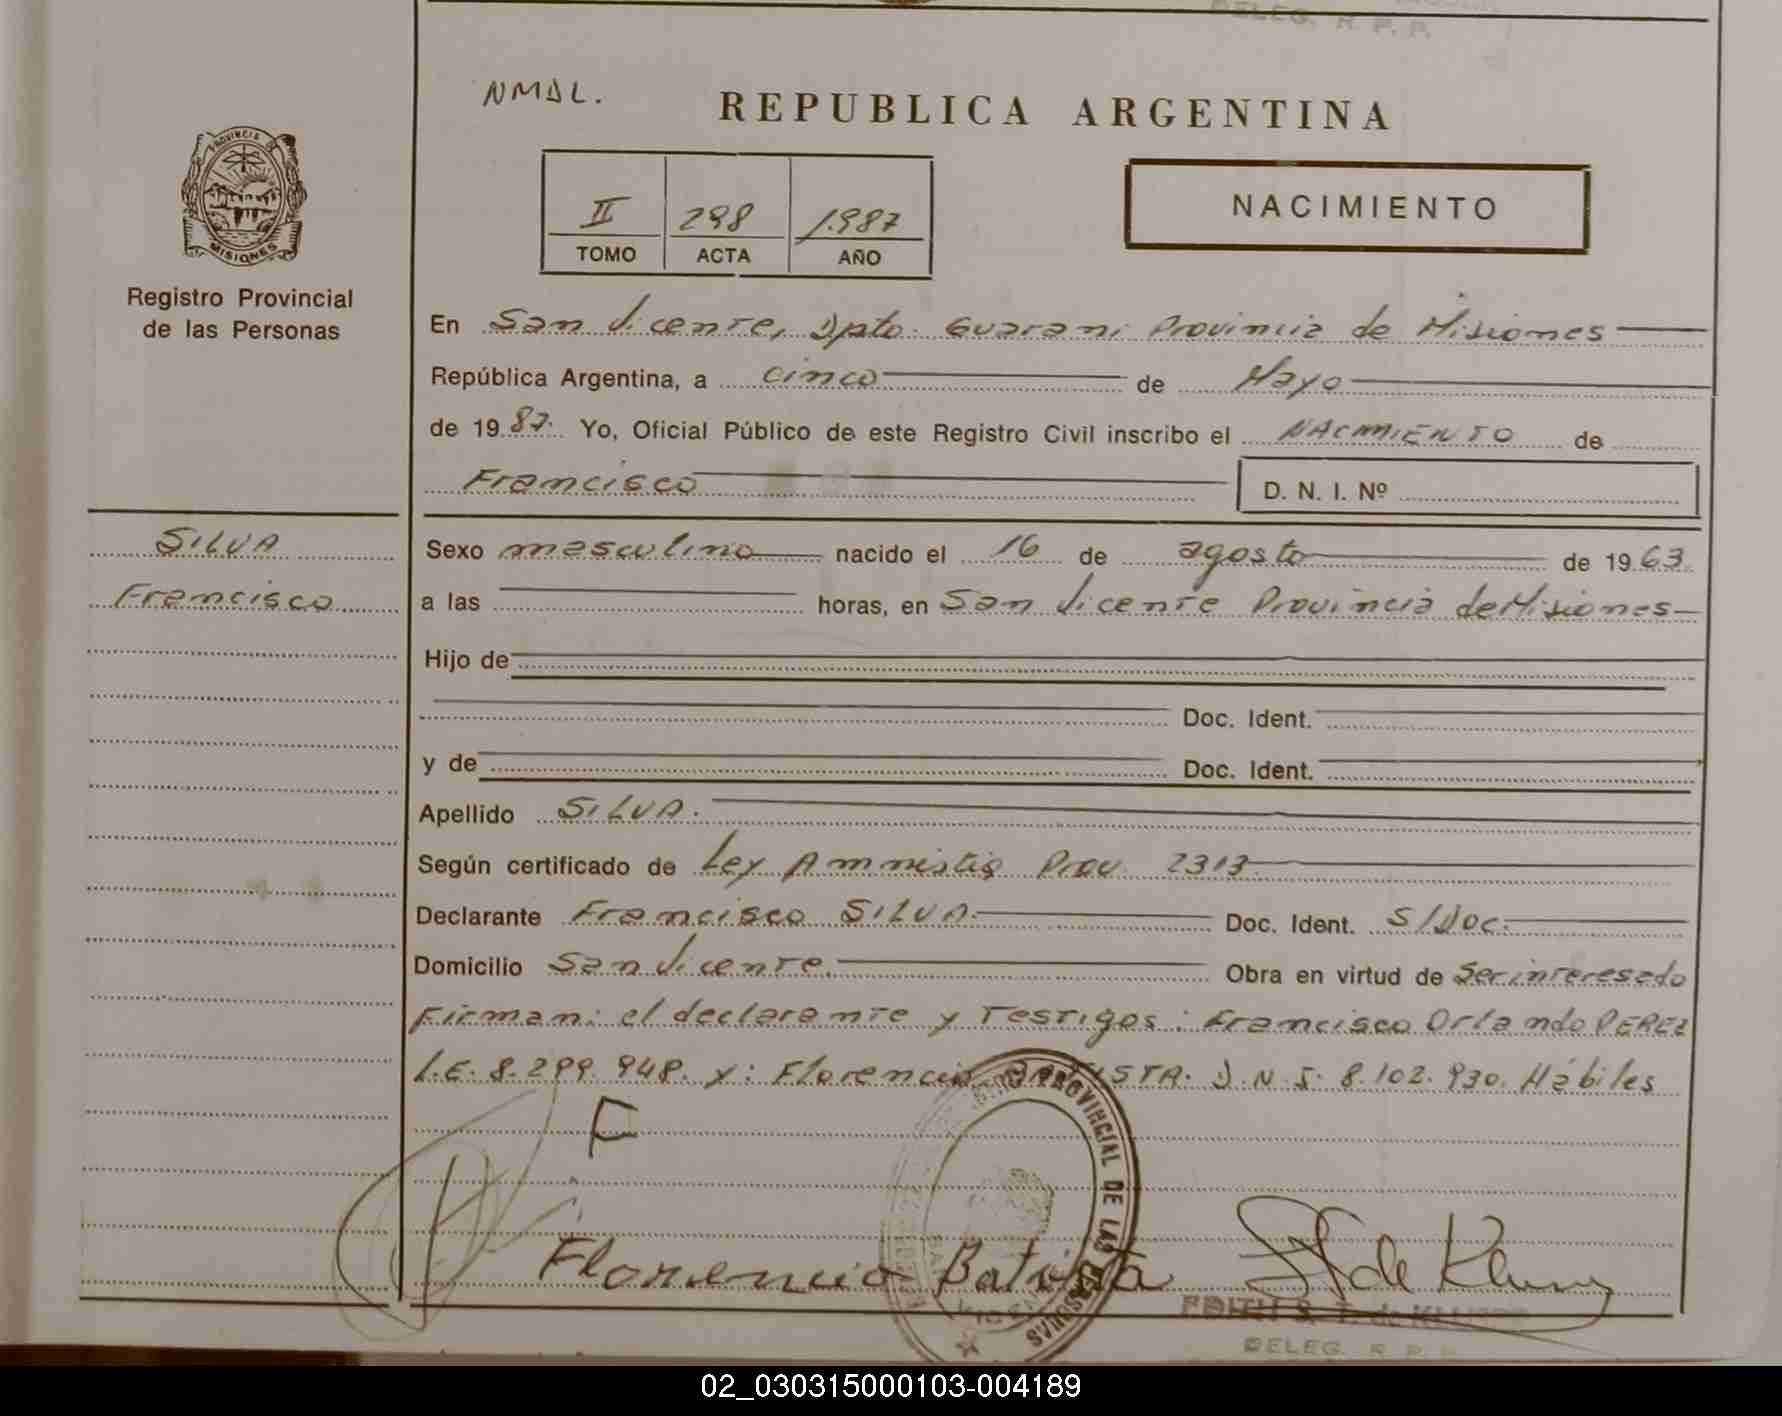 DELEG. R. P. P.
NMAL.
REPUBLICA ARGENTINA
PROVINCIA DE
MISIONES
II 298 1.987
TOMO ACTA AÑO
NACIMIENTO
Registro Provincial
de las Personas
En San Vicente, Dpto. Guarani Provincia de Misiones
República Argentina, a cinco de Mayo
de 1987. Yo, Oficial Público de este Registro Civil inscribo el NACIMIENTO de
Francisco D. N. I. Nº
SILVA
Francisco
Sexo masculino nacido el 16 de agosto de 1963.
a las horas, en San Vicente Provincia de Misiones
Hijo de
Doc. Ident.
y de Doc. Ident.
Apellido SILVA.
Según certificado de Ley Amnistia Prov. 2313
Declarante Francisco SILVA. Doc. Ident. S/Doc.
Domicilio San Vicente. Obra en virtud de Ser interesado
Firman: el declarante y Testigos: Francisco Orlando PEREZ
L.E. 8.299.948. y: Florencio BATISTA. D.N.I. 8.102.930. Hábiles
F
PROVINCIAL DE LAS PERSONAS
Florencio Batista
EDITH S. T. de
DELEG. R. P. P.
02_030315000103-004189